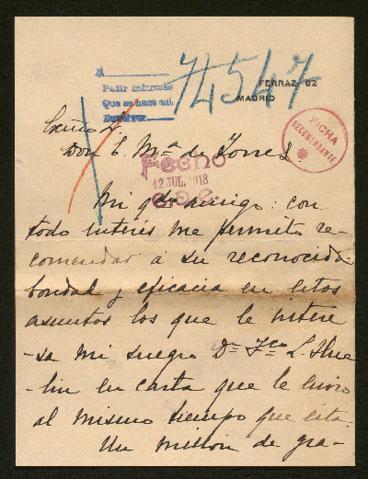 A
Pedir informes
Que se haga así
Devolver
74547
FERRAZ, 82
MADRID
FICHA
RECOMENDANTE
Don E. Mª de Torres.
Fecho
12 JUL. 1918
Mi qdo amigo: con
todo interés me permito re-
comendar a su reconocida
bondad y eficacia en estos
asuntos los que le intere
-sa mi suegro Dn Fco L.
-lin en carta que le envio
al mismo tiempo que esta.
Un millon de gra-